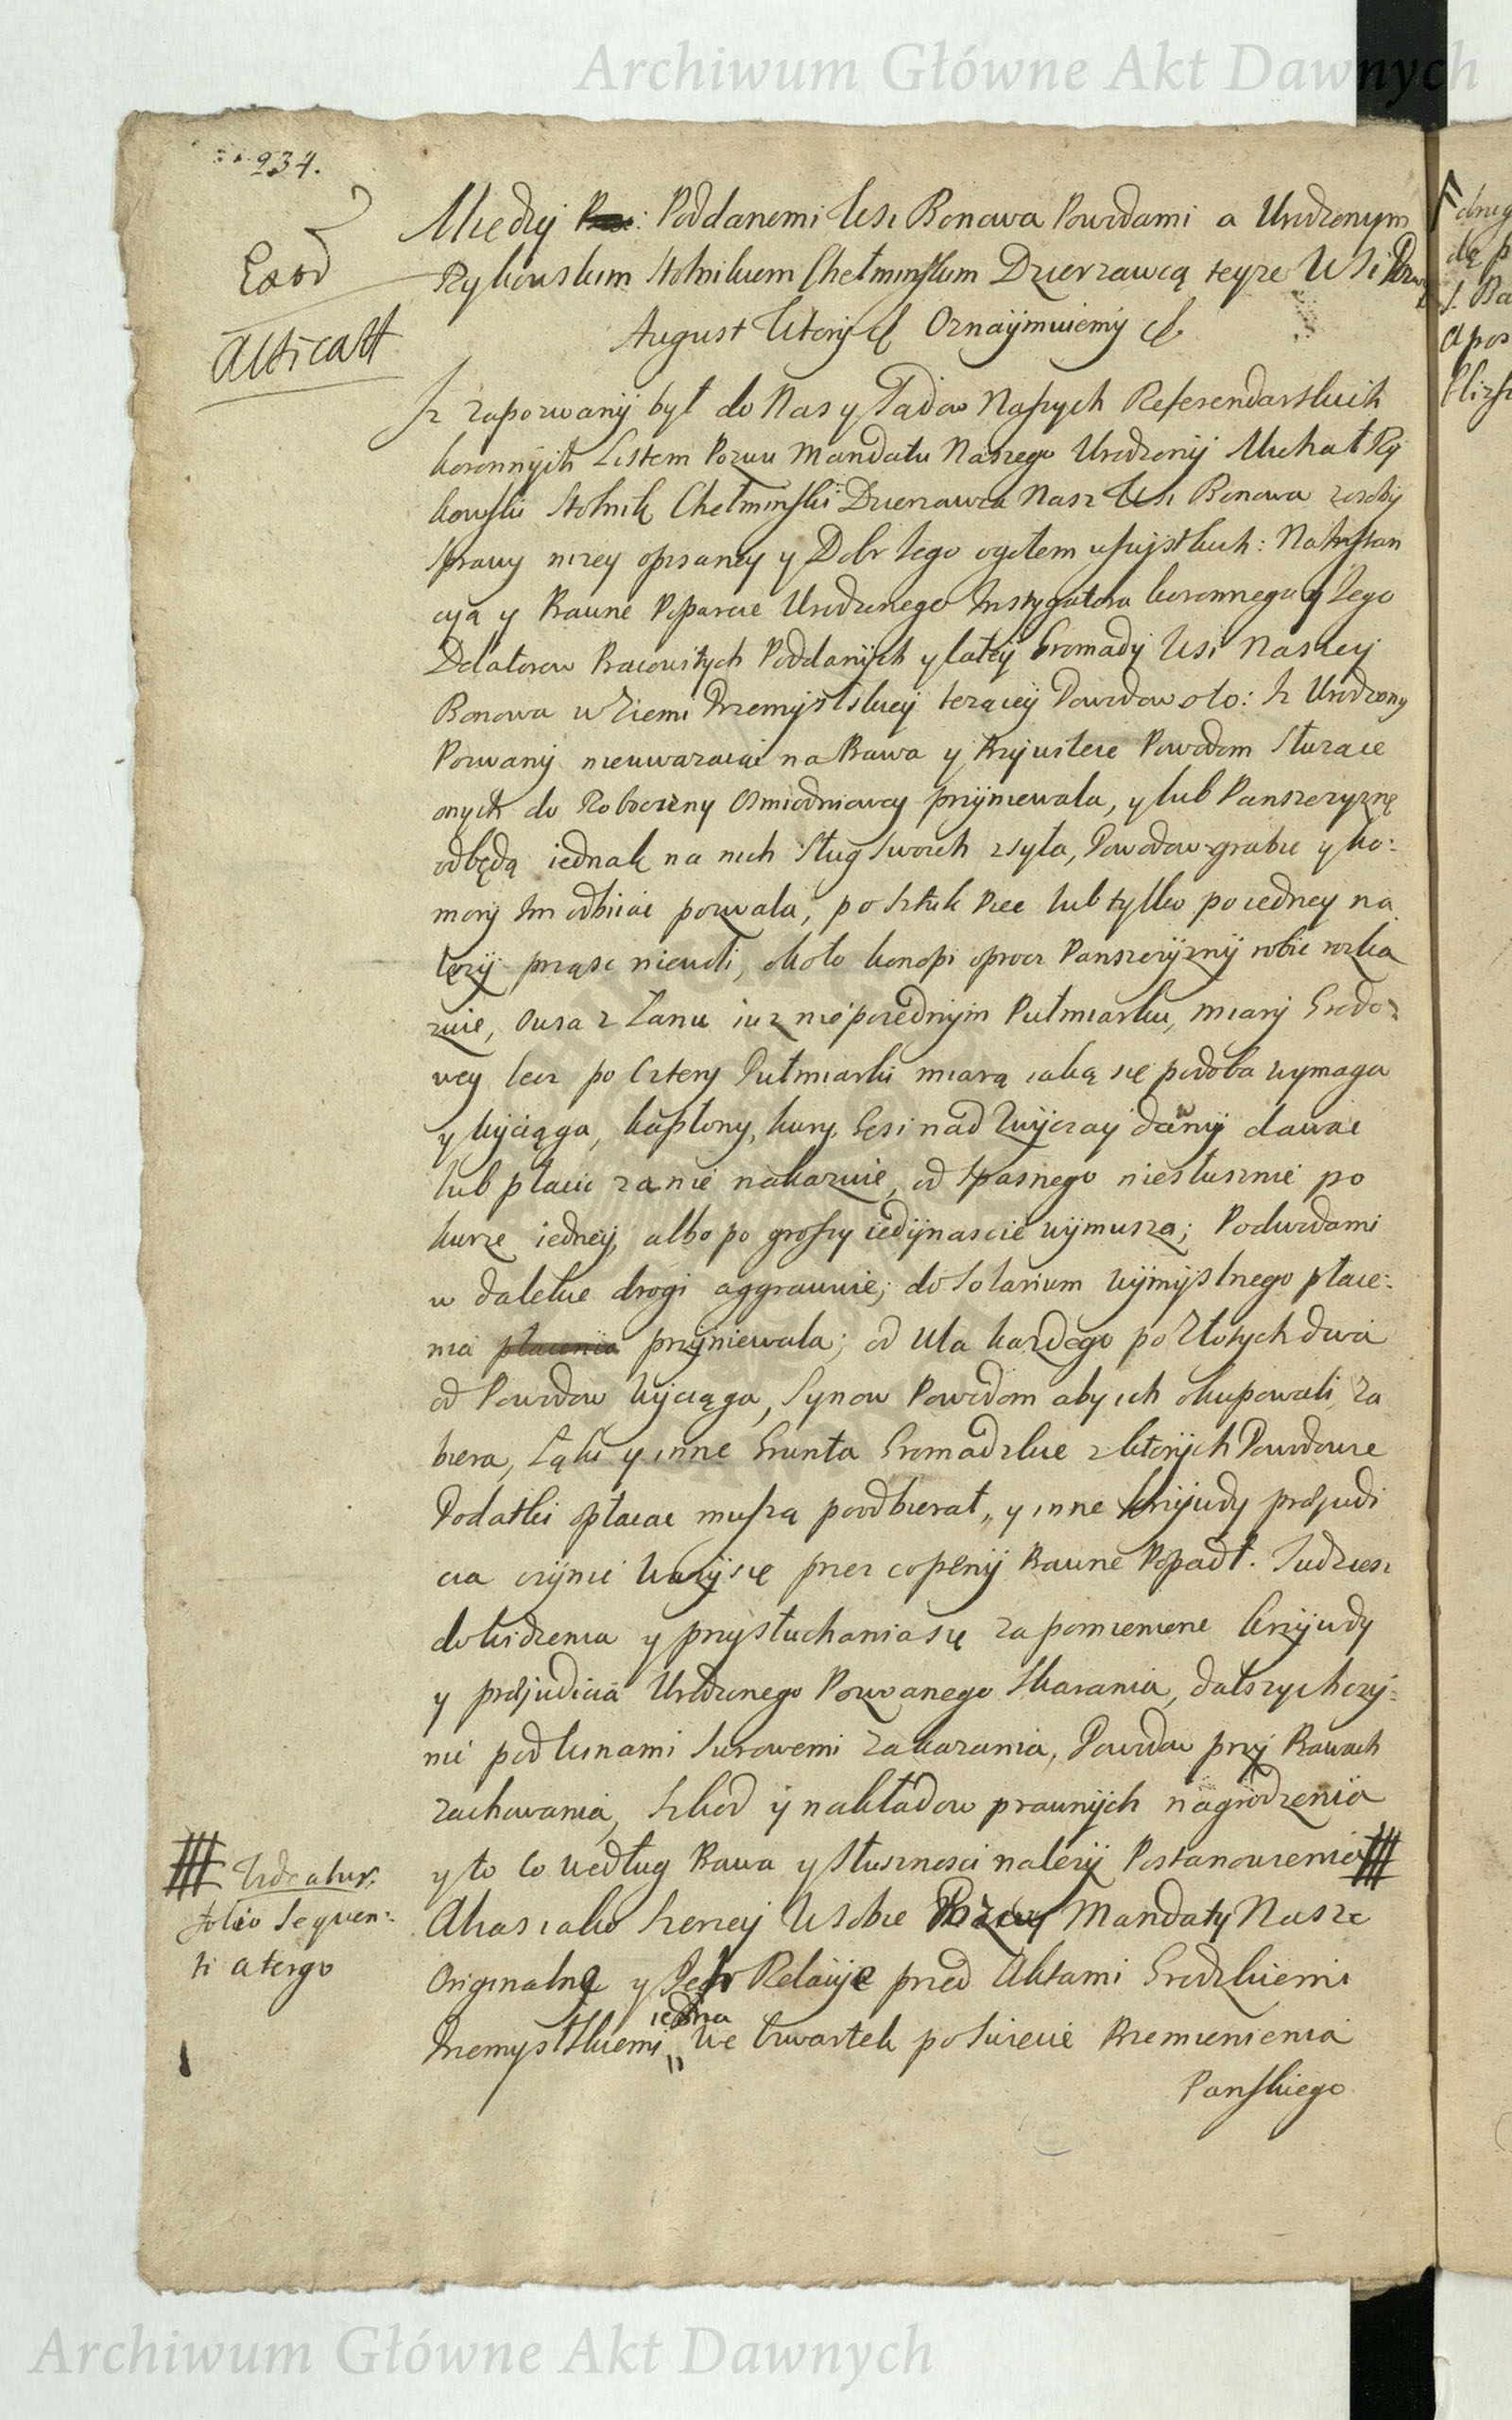 Archiwum Główne Akt Dawnych
934.
Exod
Atticatt
Między Poddanemi Wsi Bonowa Powodami a Urodzonym
Rykowskim Stolnikiem Chełminskim Dzierzawcą teyze Wsi
August Wtory Oznaymuiemy
Iz zapozwany był do Nas y Sądow Naszych Referendarskich
koronnych Listem Pozwu Mandatu Naszego Urodzony Michał Ry
kowski Stolnik Chełminski Dzierzawca Nasz Wsi Bonowa z osoby
sprawy nizey opisaney y Dobr Iego ogołem wszystkich: Na Instan
cyą y Prawne Poparcie Urodzonego Instygatora koronnego y Iego
Delatorow Pracowitych Poddanych y całey Gromady Wsi Naszey
Bonowa w Ziemi Przemyslskiey lezącey Powodow oto: Iz Urodzony
Pozwany nieuwazaiąc na Prawa y Przywileie Powodom słuzące
onych do Robocizny Osmiodniowey przymewala, y lub Panszczyznę
odbędą iednak na nich Sług swoich zsyła, Powodow grabic y ko:
mory Im odbiiac pozwala, po sztuk Pięc lub tylko po iedney na
lezy prząsc niewoli, około konopi oprocz Panszczyzny robic rozka
zuie, Owsa z Łanu iuz nie poiednym Pułmiarku, miary Grodo:
wey lecz po Cztery Pułmiarki miarą iaką się podoba wymaga
y wyciąga, kapłony, kury, Gęsi nad Zwyczay dawny dawac
lub płacic za nie nakazuie, od spasnego niesłusznie po
kurze iedney, albo po groszy iedynascie wymusza; Podwodami
w dalekie drogi aggrawuie; do Solarium wymyslnego płace:
nia przyniewala; od Ula kazdego po Złotych dwa
od Powodow wyciąga, Synow Powodom aby ich okupowali, za
biera, Łąki y inne Grunta Gromadzkie z ktorych Powodowie
Podatki opłacac muszą poodbierał, y inne krzywdy praejudi
cia czynic wazy się przez co peny Prawne Popadł. Sudziesz
do widzenia y przysłuchania się za pomienione krzywdy
y praejudicia Urodzonego Pozwanego skarania, dalszych czy:
nic pod winami surowemi zakazania, Powodow przy Prawach
zachowania, szkod y nakładow prawnych nagrodzenia
y to co według Prawa y słusznosci nalezy Postanowienia
Akas iako szerzey w sobie Pozwy Mandaty Nasze
Originalne y Relacye przed Aktami Grodzkiemi
iedna
Przemyslskiemi we Czwartek po Swięcie Przemienienia
Panskiego
Videatur
folio sequen:
ti a tergo
Archiwum Główne Akt Dawnych